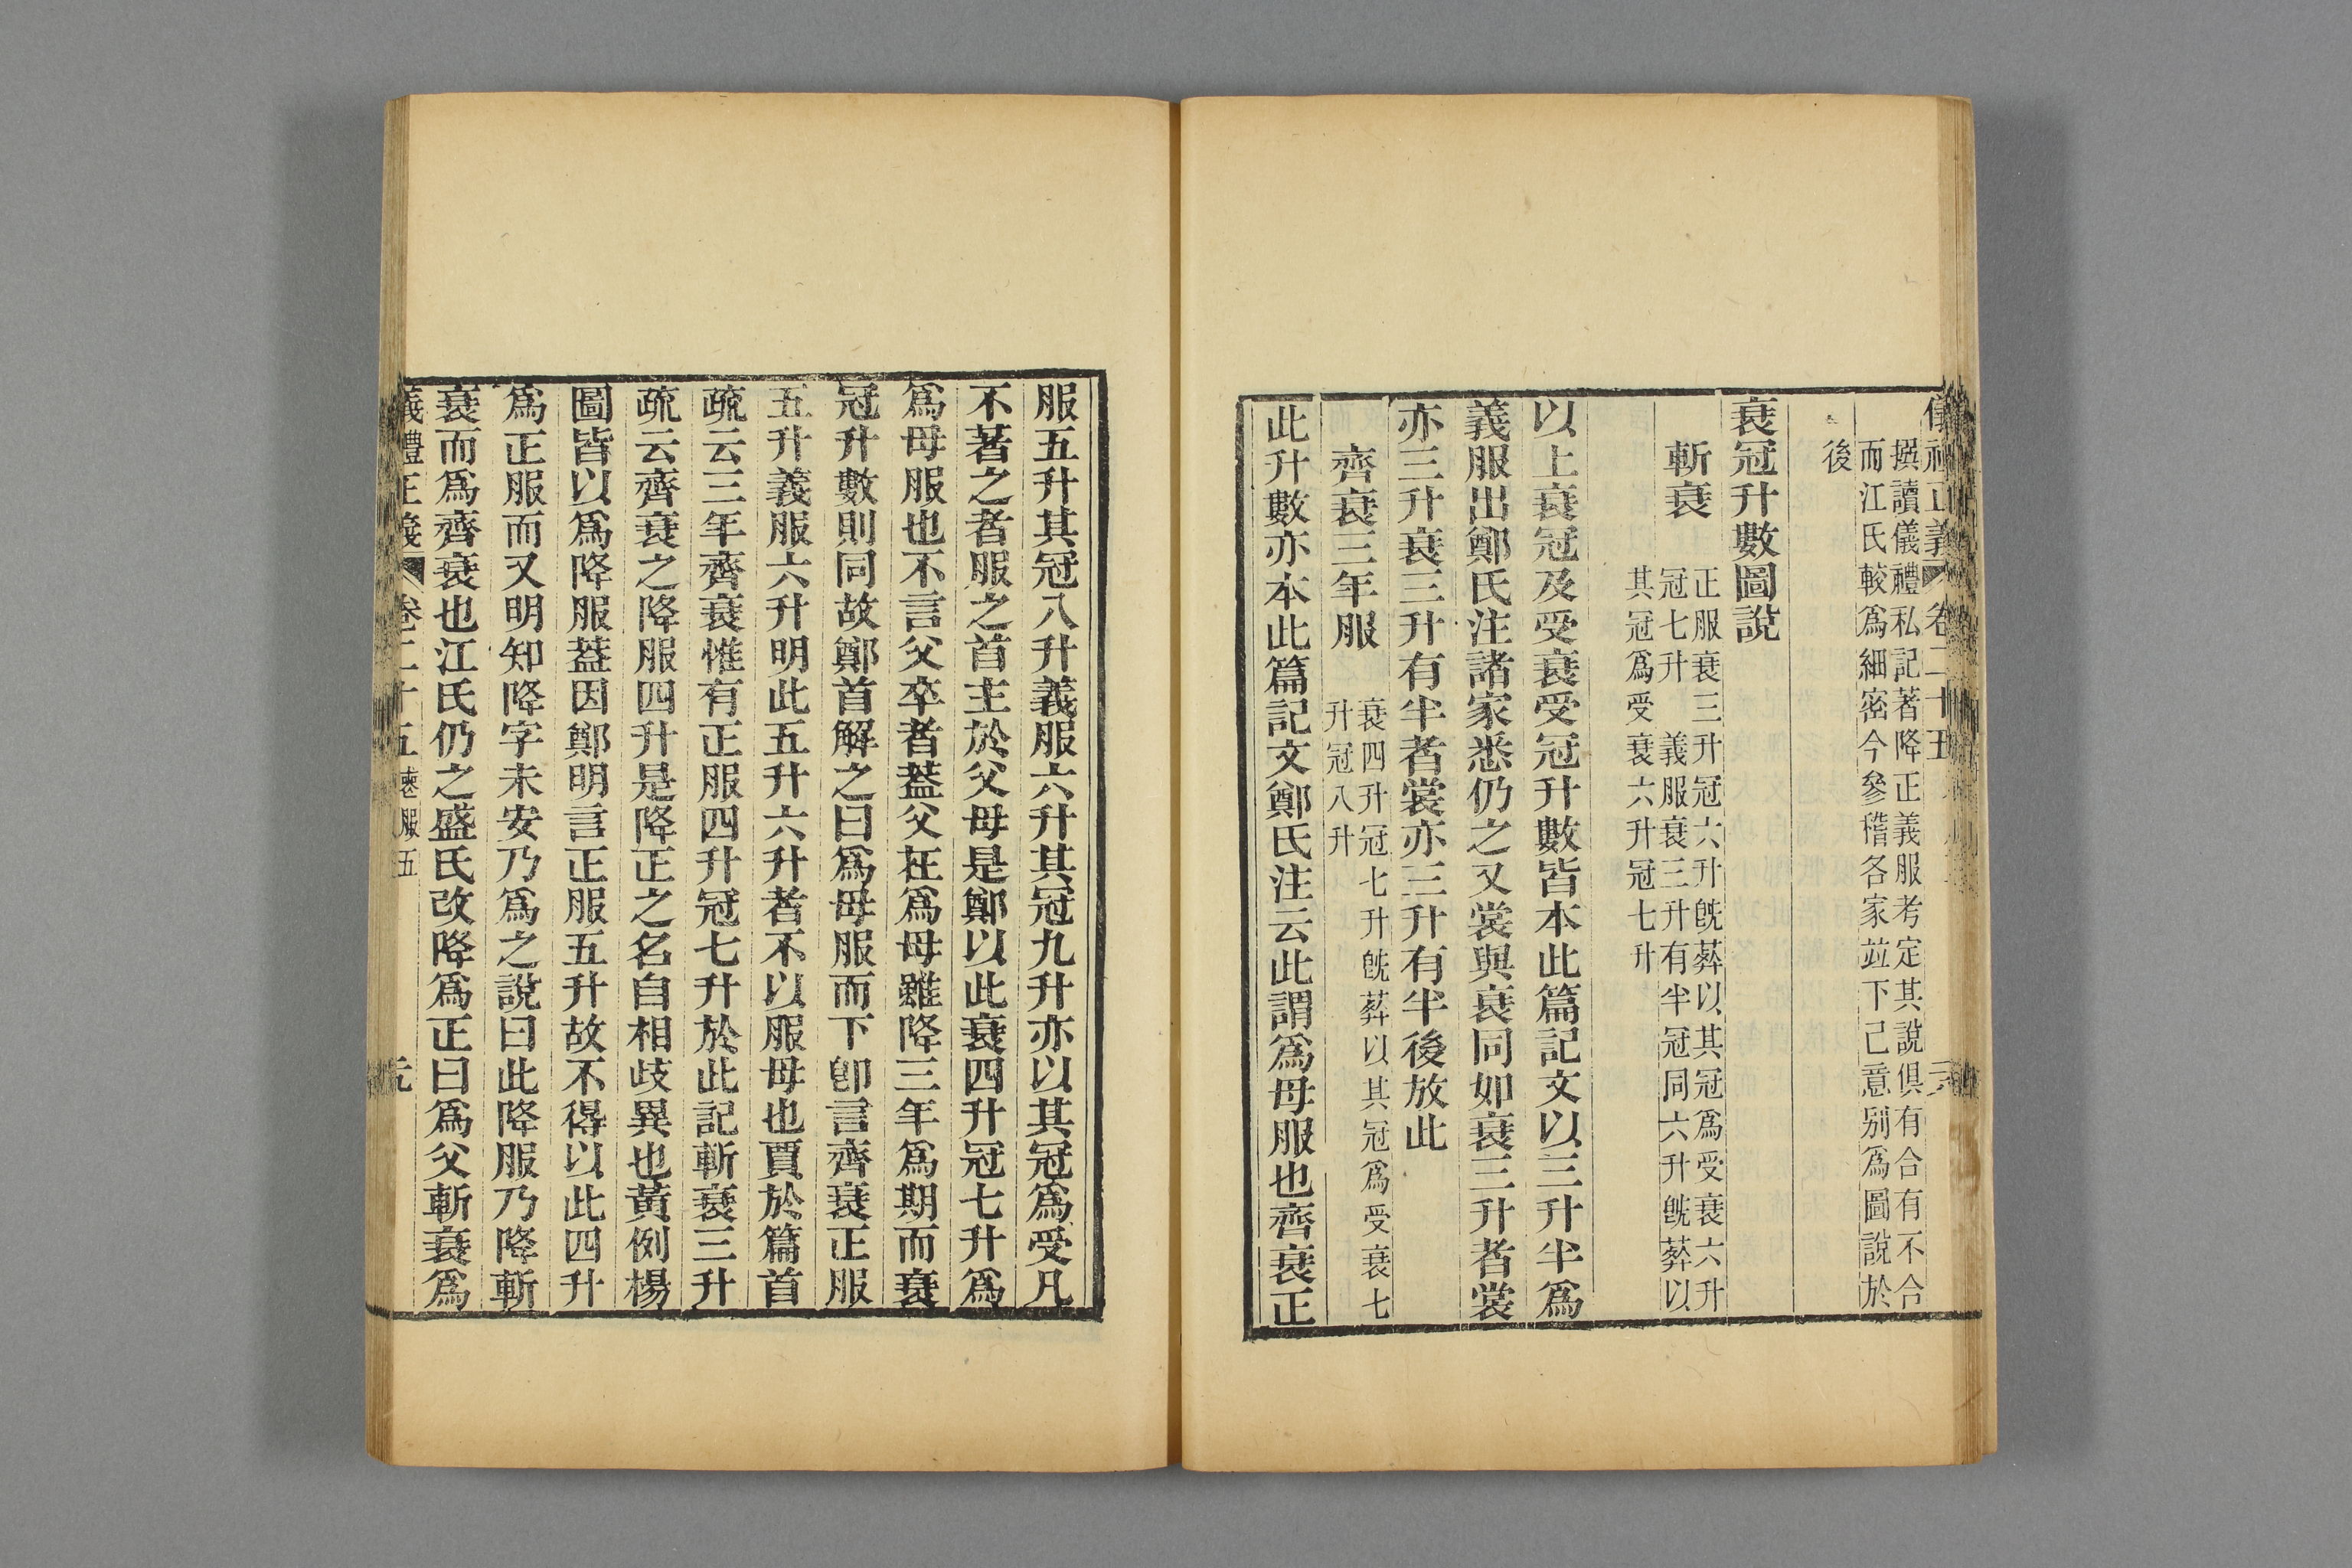 正義 卷二十五
撰讀儀禮私記著降正義服考定其說俱有合有不合
而江氏較爲細密今參稽各家竝下己意别爲圖說於
後
衰冠升數圖說
斬衰
正服衰三升冠六升旣葬以其冠爲受衰六升
冠七升 義服衰三升有半冠同六升旣葬以
其冠爲受衰六升冠七升
以上衰冠及受衰受冠升數皆本此篇記文以三升半爲
義服出鄭氏注諸家悉仍之又裳與衰同如衰三升者裳
亦三升衰三升有半者裳亦三升有半後放此
齊衰三年服
衰四升冠七升旣葬以其冠爲受衰七
升冠八升
此升數亦本此篇記文鄭氏注云此謂爲母服也齊衰正
服五升其冠八升義服六升其冠九升亦以其冠爲受凡
不著之者服之首主於父母是鄭以此衰四升冠七升爲
爲母服也不言父卒者蓋父在爲母雖降三年爲期而衰
冠升數則同故鄭首解之曰爲母服而下卽言齊衰正服
五升義服六升明此五升六升者不以服母也賈於篇首
疏云三年齊衰惟有正服四升冠七升於此記斬衰三升
疏云齊衰之降服四升是降正之名自相歧異也黃例楊
圖皆以爲降服蓋因鄭明言正服五升故不得以此四升
爲正服而又明知降字未安乃爲之說曰此降服乃降斬
衰而爲齊衰也江氏仍之盛氏改降爲正曰爲父斬衰爲
儀禮正義 卷二十五 喪服五